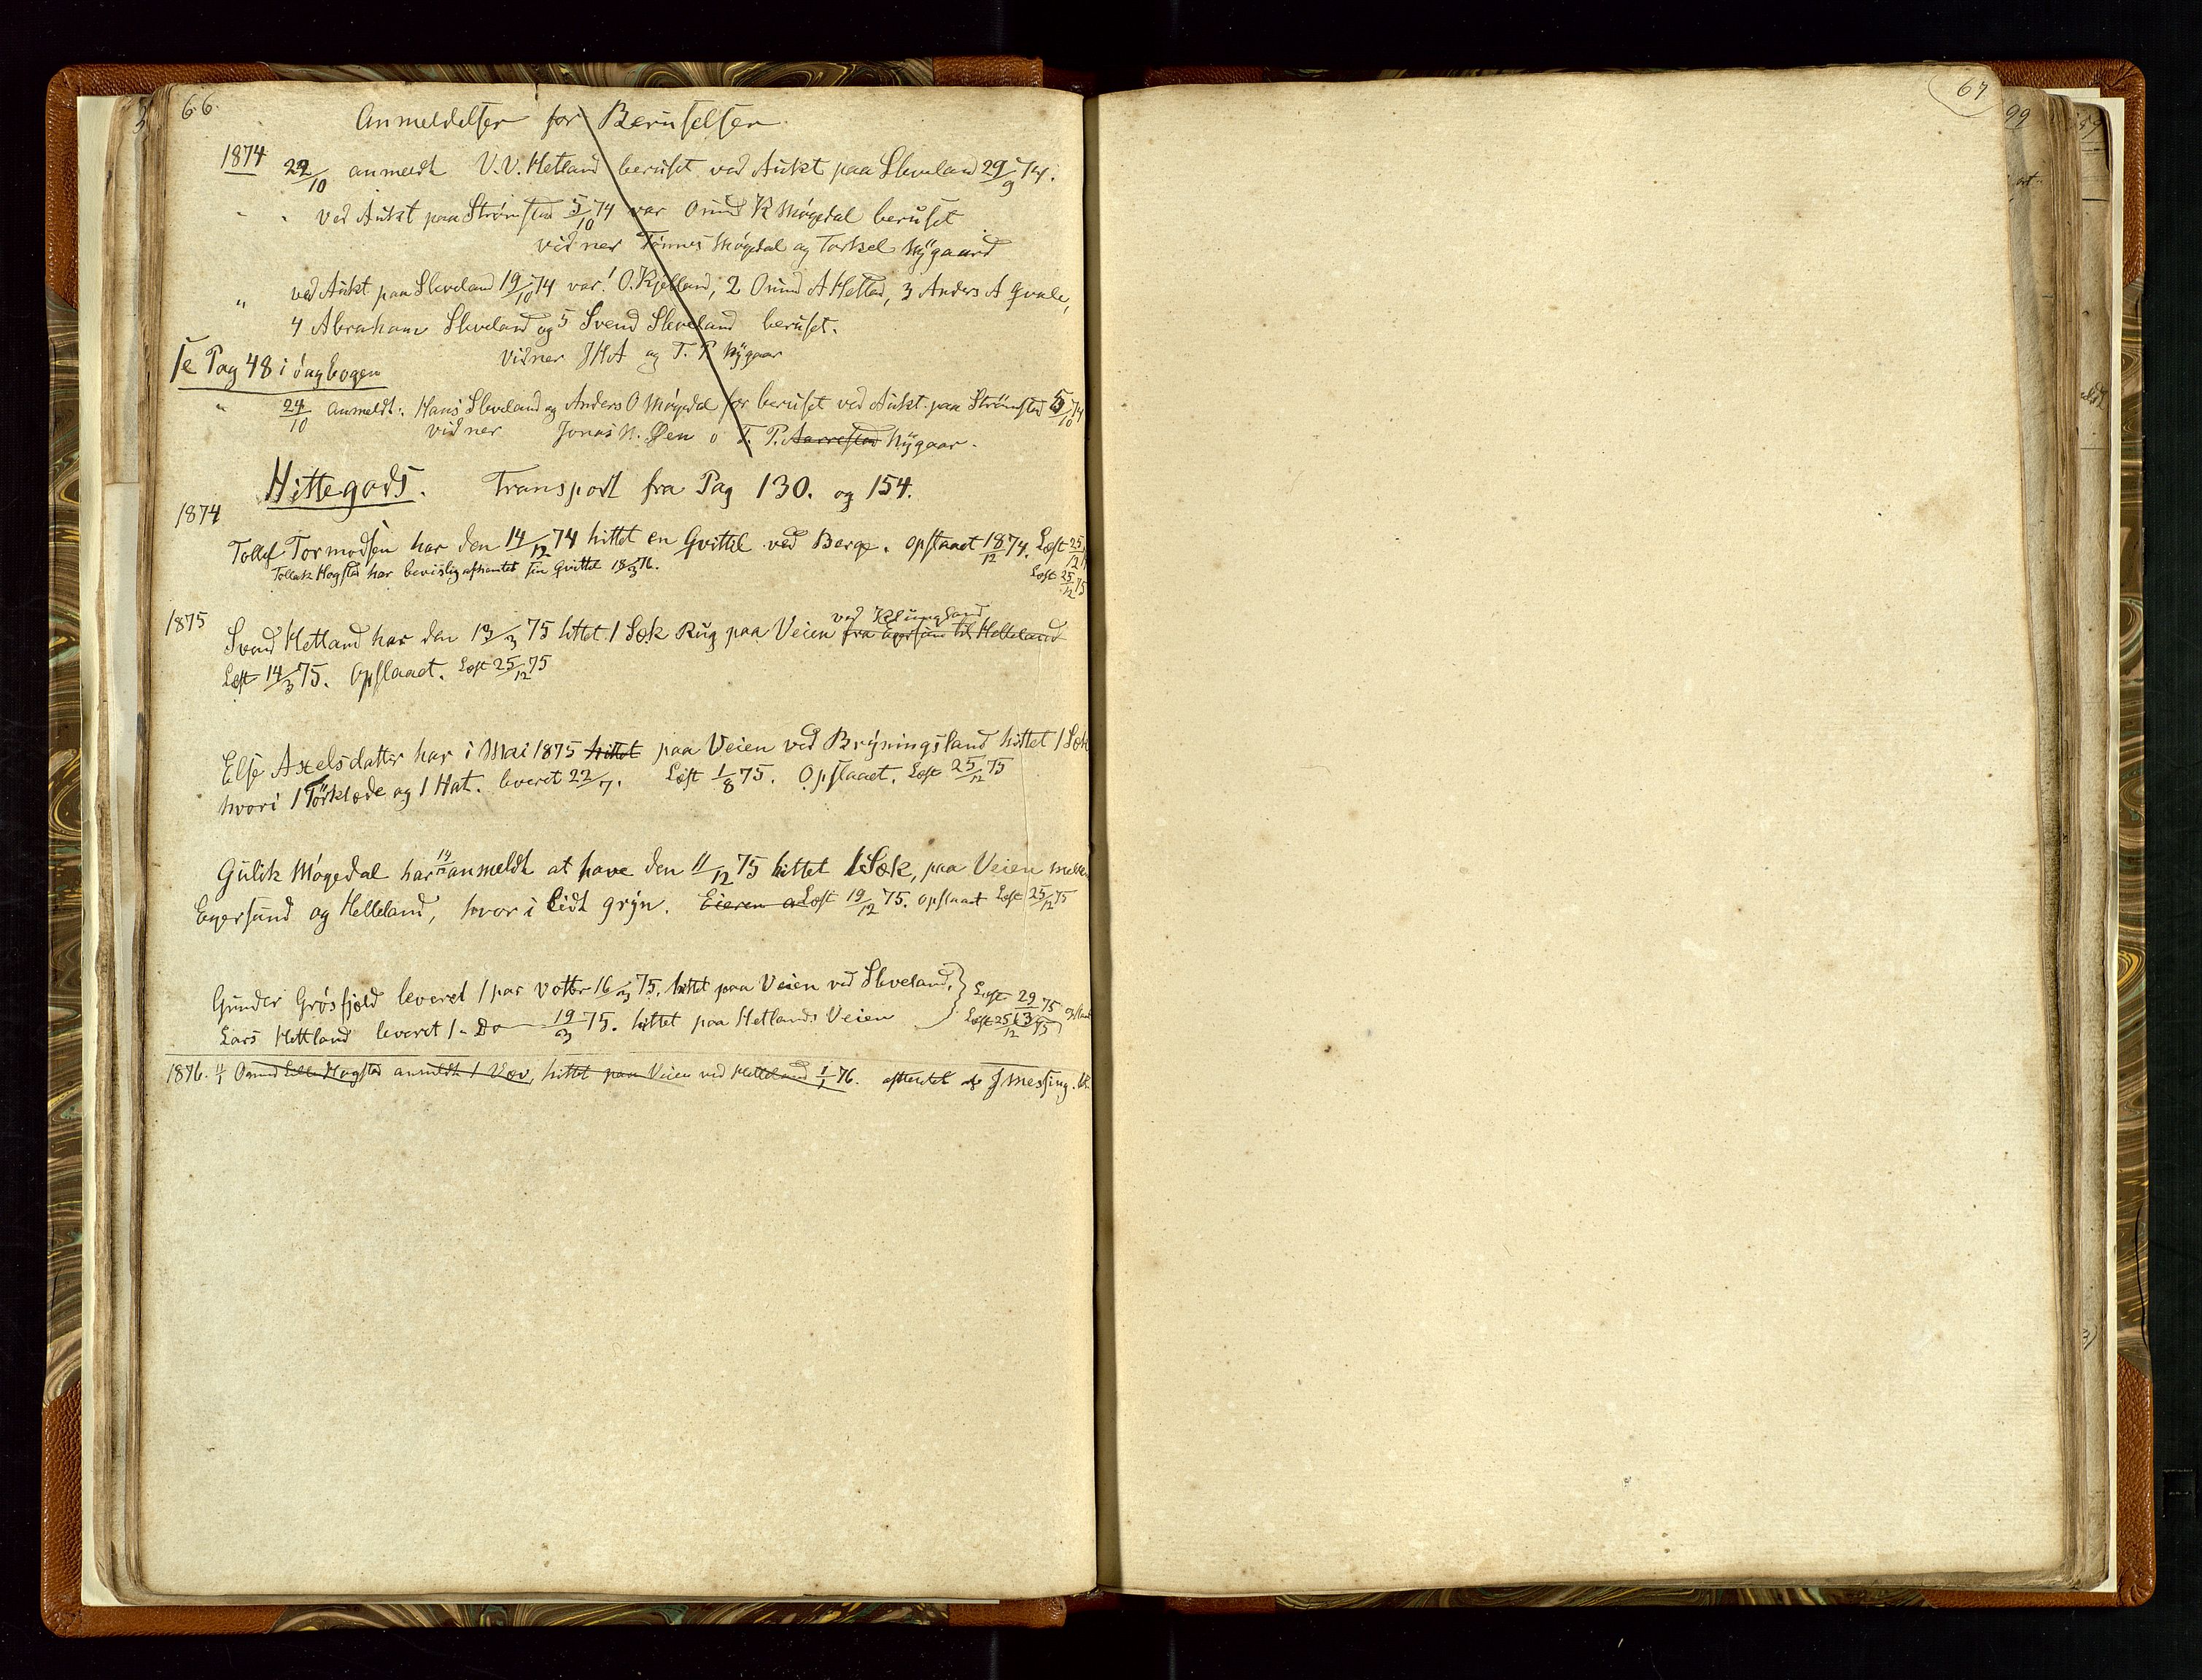 66.
Anmeldelser for Beruselser
1874 22/10 anmeldt V.V. Hetland beruset ved Aukt paa Sleveland 29/9 74.
" " ved Aukt paa Strømstad 5/10 74 var Omund K Møgedal beruset
vidner Tønnes Møgedal og Torkel Nÿgaard
" ved Aukt paa Sleveland 19/10 74 var 1 O. Kjelland, 2 Omund A Hetlad, 3 Anders A Qvale,
4 Abraham Sleveland og 5 Svend Sleveland beruset.
vidner JHA og T. P. Nÿgaar
se Pag 48 i dagbogen
" 24/10 anmeldt: Hans Sleveland og Anders O Møgedal for beruset ved Aukt. paa Strømstad 5/10 74
vidner Jonas N. Øen o T. P. Aarrestad Nÿgaar.
Hittegods. Transport fra Pag 130. og 154.
1874
Tollef Tormodsen har den 14/12 74 hittet en Qvittel ved Berge. opslaaet 18/12 74. Læst 25/12
Tollak Hogstad har bevislig afhentet sin Qvittel 18/3 76. Læst 25/12 75
1875
ved Klungland
Svend Hetland har den 13/3 75 hittet 1 Sæk Rug paa Veien fra Egersund til Helleland
Læst 14/3 75. Opslaaet. Læst 25/12 75
Else Axelsdatter har i Mai 1875 hittet paa Veien ved Brÿningsland hittet 1 Sæk
hvori 1 Tørklæde og 1 Hat. leveret 22/7. Læst 1/8 75. Opslaaet. Læst 25/12 75
Gulik Møgedal har 14/12 anmeldt at have den 11/12 75 hittet 1 Sæk, paa Veien mellem
Egersund og Helleland, hvori lidt grÿn. Eieren a Læst 19/12 75. opslaaet Læst 25/12 75
Gunder Grøsfjeld leveret 1 par votter 16/3 75. hittet paa Veien ved Sleveland. } Læst 29/3 75
Lars Hettland leveret 1 - Do 19/3 75. hittet paa Hetlands Veien Læst 25/12 75
1876. 11/1 Omund Lille Hogstad anmeldt 1 Væv, hittet paa Veien ved Helleland 1/1 76. afhentet af J Messing.
67
99